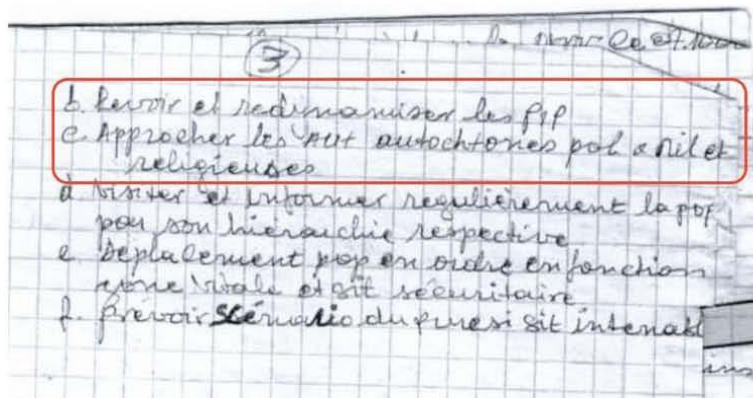 3
b. Revoir et redinamiser les PIP
c. Approcher les AUT autochtones pol a mil et
religieuses
d. Visiter et informer regulièrement la pop
par son hiérarchie respective
e. Déplacement pop en ordre en fonction
zone vitale et sit sécuritaire
f. Prévoir scénario du pire si sit intenabl
ins